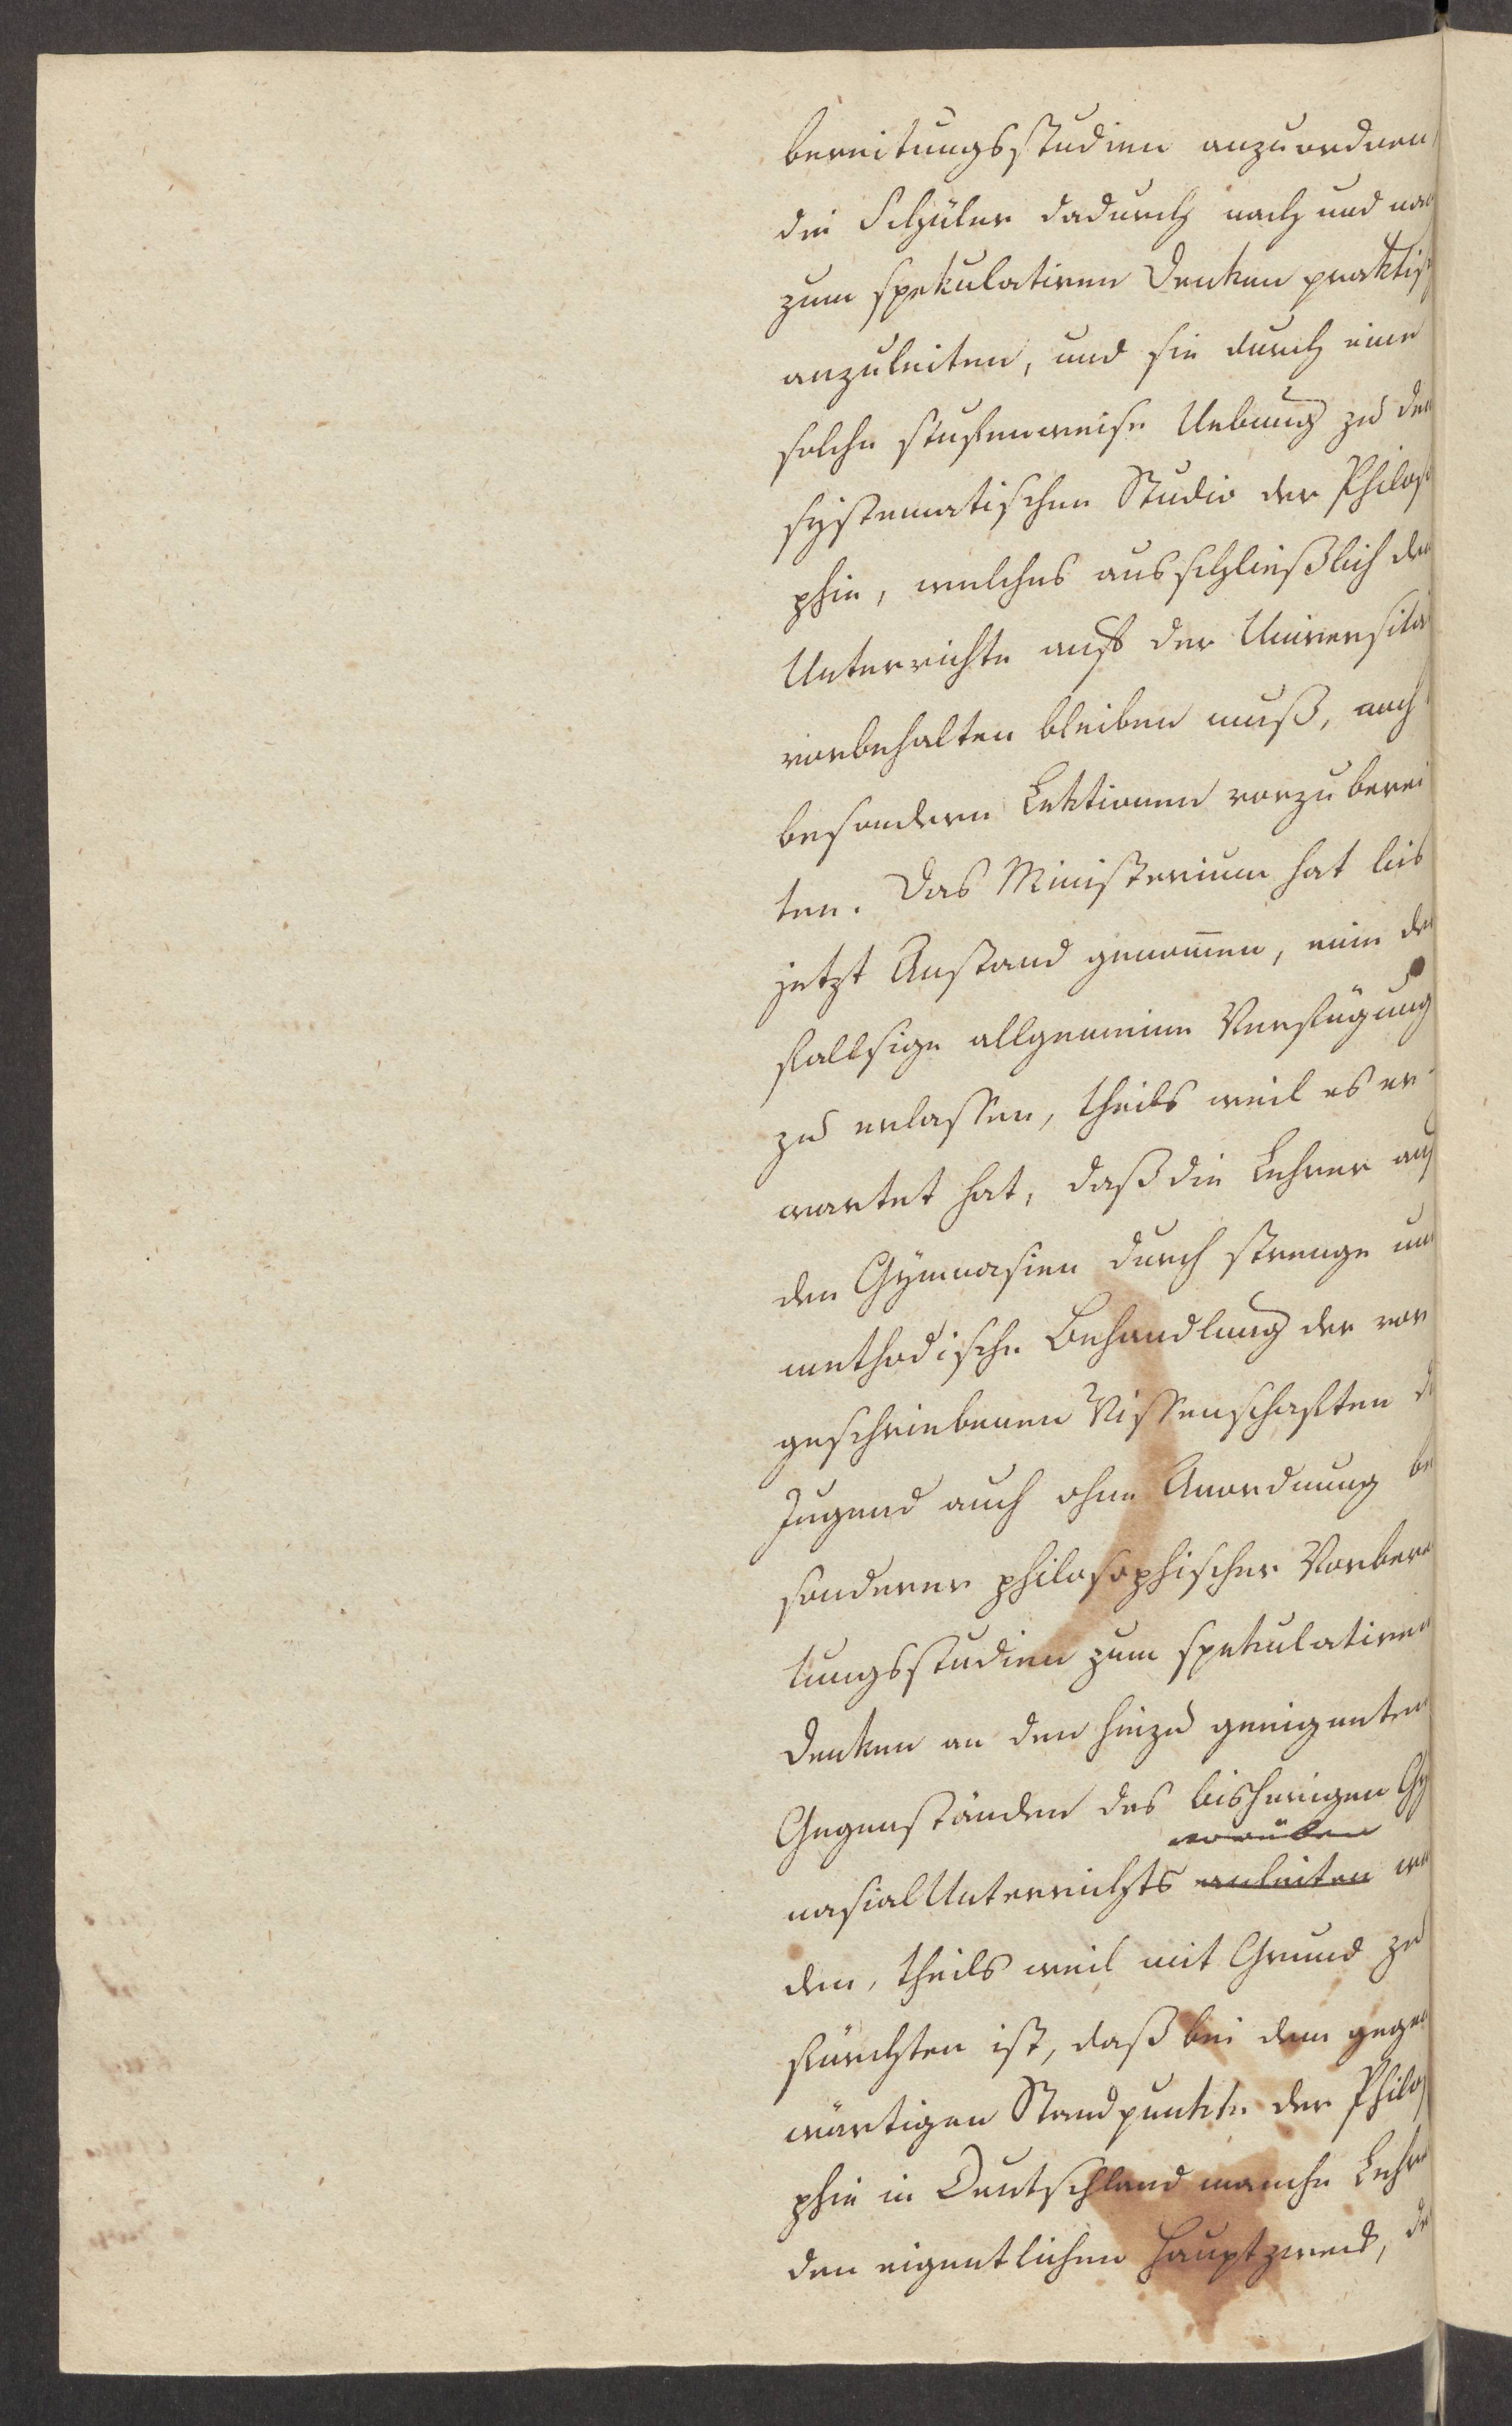 bereitungsstudien anzuordnen,
die Schüler dadurch nach und nach
zum spekulativen Denken praktisch
anzuleiten, und sie durch eine
solche stufenweise Uebung zu dem
systematischen Studio der Philoso
phie, welches ausschließlich dem
Unterrichte auf der Universität
vorbehalten bleiben muß, noch
besondern Lektionen vorzuberei
ten. Das Ministerium hat bis
jetzt Anstand genom̄en, eine des
fallsige allgemeine Verfügung
zu erlassen, theils weil es er-
wartet hat, daß die Lehrer auf
den Gymnasien durch strenge und
methodische Behandlung der vor
geschriebenen Wissenschaften die
Jugend auch ohne Anordnung be
sonderer philosophischer Vorberei
tungsstudien zum spekulativen
Denken an den hiezu geeigneten
Gegenständen des bisherigen Gym
vorüben
nasialUnterrichts anleiten wer
den, theils weil mit Grund zu
fürchten ist, daß bei dem gegen
wärtigen Standpunkte der Philoso
phie in Deutschland manche Lehrer
den eigentlichen Hauptzweck, de